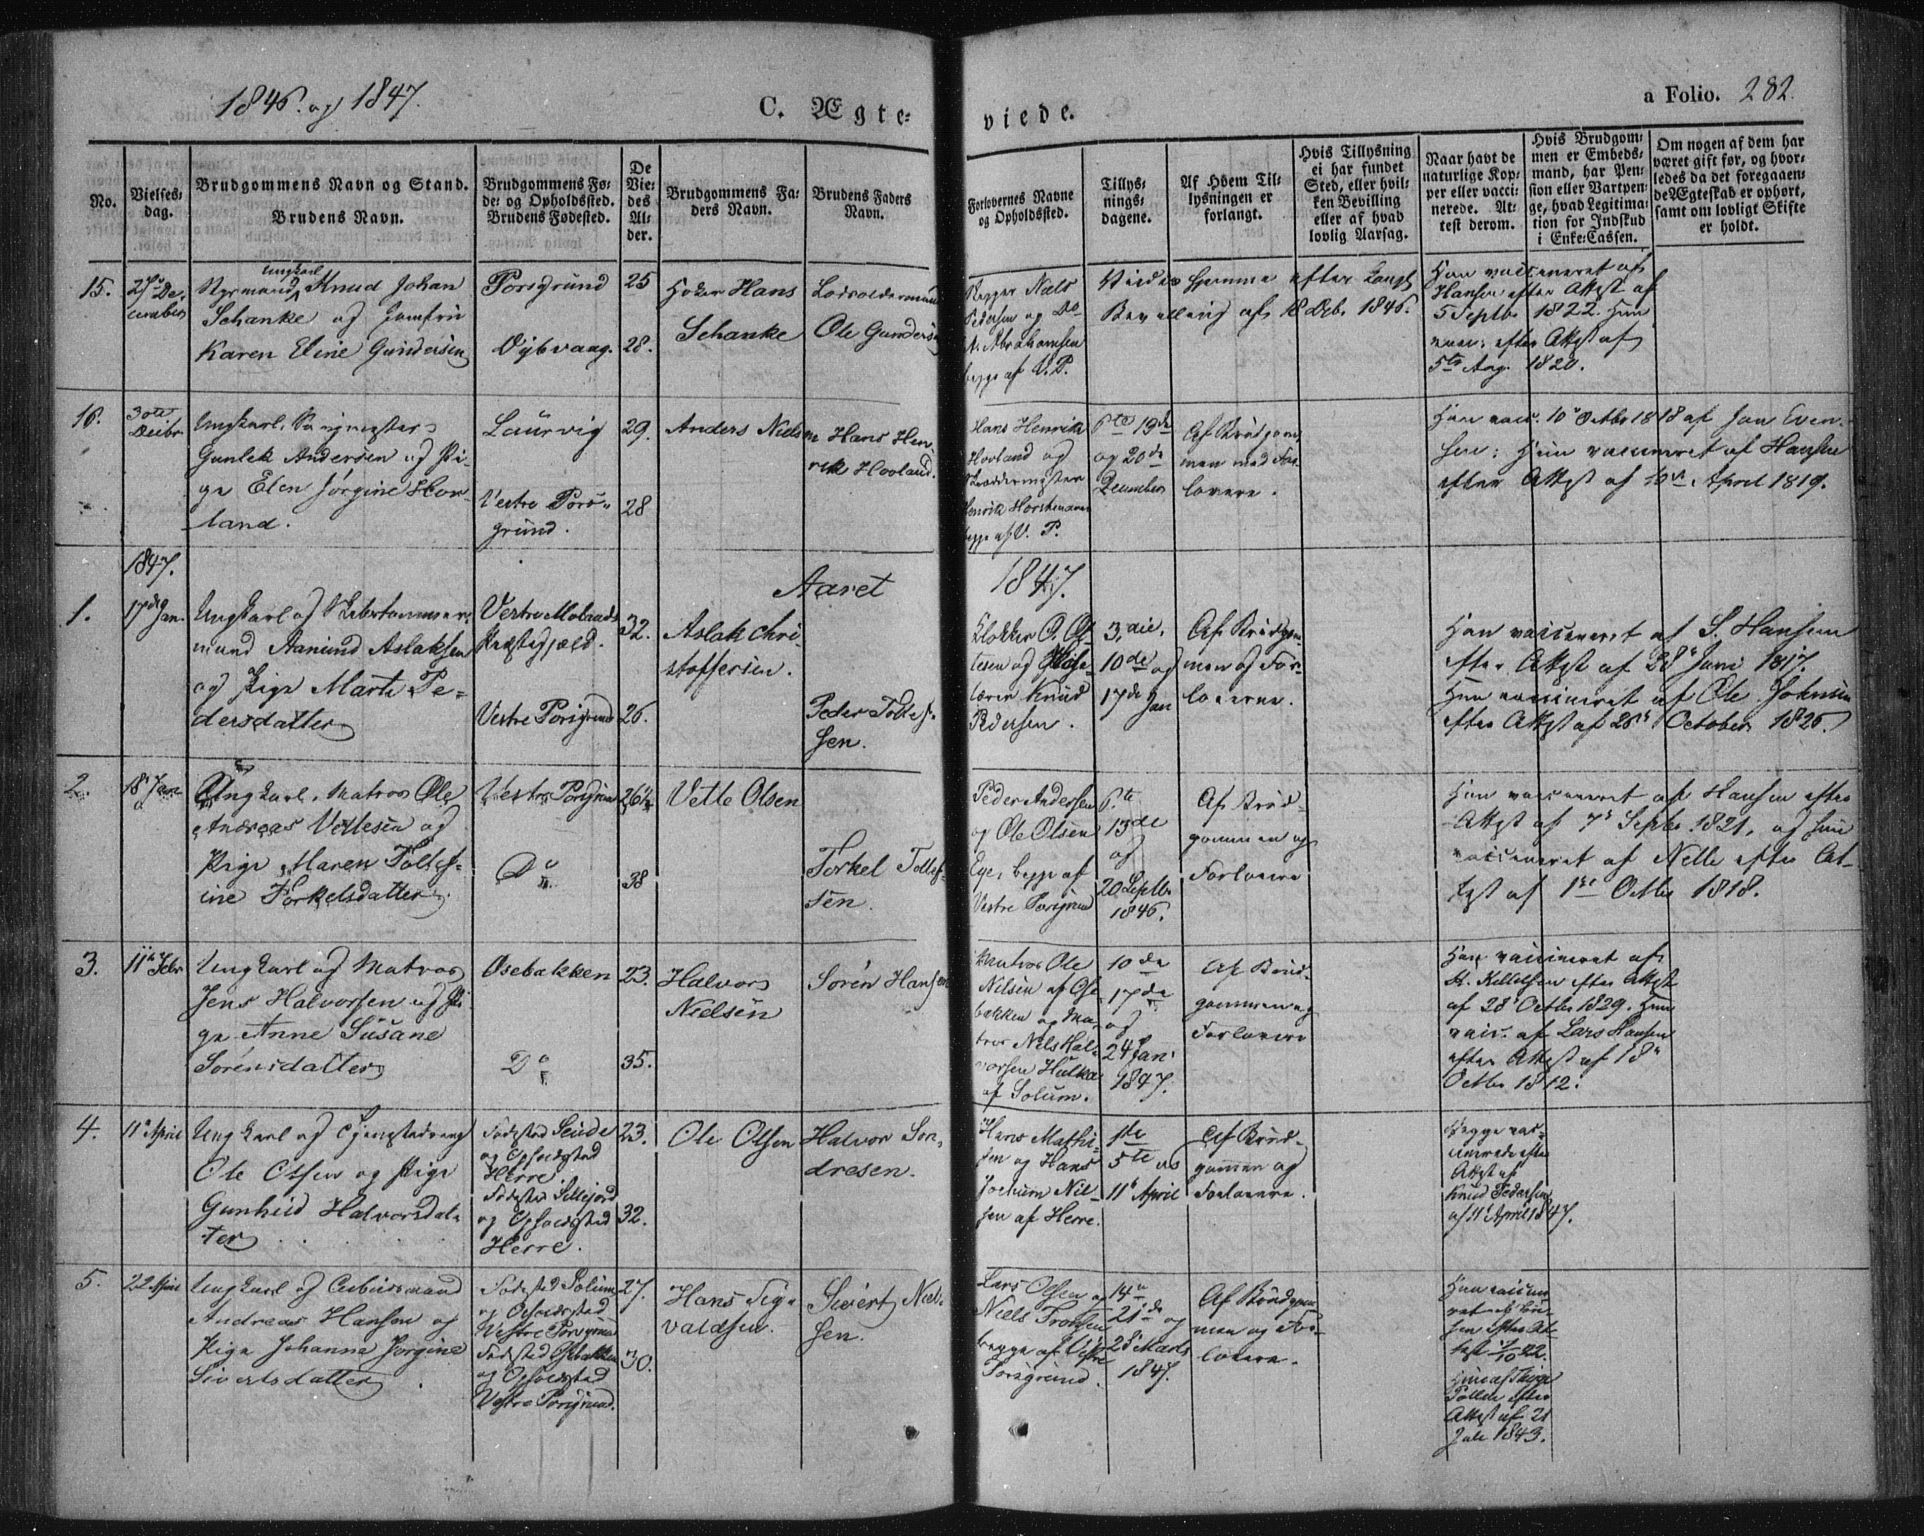 1846. og 1847.
C. Ægte-
viede.
a Folio. 282.
No.
Vielses-
dag.
Brudgommens Navn og Stand.
Brudens Navn.
Brudgommens Fø-
de- og Opholdssted.
Brudens Fødested.
De
Vie-
des
Al-
der.
Brudgommens Fa-
ders Navn.
Brudens Faders
Navn.
Forlovernes Navne
og Opholdssted.
Tillys-
nings-
dagene.
Af Hvem Til-
lysningen er
forlangt.
Hvis Tillysning
ei har fundet
Sted, eller hvil-
ken Bevilling
eller af hvad
lovlig Aarsag.
Naar havt de
naturlige Kop-
per eller vacci-
nerede. At-
test derom.
Hvis Brudgom-
men er Embeds-
mand, har Pen-
sion eller Vartpen-
ge, hvad Legitima-
tion for Indskud
i Enke-Cassen.
Om nogen af dem har
været gift før, og hvor-
ledes da det foregaaen-
de Ægteskab er ophørt,
samt om lovligt Skifte
er holdt.
15.
27de De-
cember
Ungkarl
Styrmand Knud Johan
Schanke og Jomfru
Karen Eline Gundersen
Porsgrund
Dybvaag.
25
28.
Hans
Schanke
Ole Gunders
Niels
Pedersen og
Abrahamsen
begge af V. P.
Viede hjemme efter Kongl
Bevilling af 18 Deb. 1846.
Han vaccineret af
Hansen efter Attest af
5 Septb 1822. Hun
vacc: efter Attest af
5te Aug. 1820.
16.
30te
Decbr
Ungkarl,
Gunlek Andersen og Pi-
ge Elen Jørgine Hov-
land.
Laurvig
Vestre Pors-
grund.
29.
28
Anders Nielsen
Hans Hen-
rik Hovland.
Hans Henrik
Hovland og
Henrik
begge af V. P.
6te 13de
og 20de
December
Af Brudgom-
men med For-
lovere.
Han vacc. 10 Octbr 1818 af Jon Even-
sen; Hun vaccineret af Hansen
efter Attest af April 1819.
1847.
Aaret
1847.
1.
17de Jan.
Ungkarl og
mand Aamund Aslaksen
og Pige Marte Pe-
dersdatter
Vestre Molands
Præstegjæld.
Vestre Porsgrund
32.
26.
Aslak Chri-
stoffersen.
Peder Tollef-
sen.
Klokker O. Ol-
sen og
lærer Knud
Pedersen.
3die,
10de og
17de Jan
Af Brudgom-
men og For-
loverne.
Han vaccineret af S. Hansen
efter Attest af 28 Juni 1817.
Hun vaccineret af Ole Johnsen
efter Attest af 28 October 1826.
2.
18 Jan
Ungkarl, Matros Ole
Andreas Vettesen og
Pige Maren Tollef-
ine Torkelsdatter
Vestre Porsgrund
Do
26½
38
Vette Olsen
Torkel Tollef-
sen.
Peder Andersen
og Ole Olsen
Ege, begge af
Vestre Porsgrund
6te
13de
og
20 Septb
1846.
Af Brud-
gommen og
Forlovere
Han vaccineret af Hansen efter
Attest af 7 Septbr 1821, og hun
vaccineret af Nelle efter At-
test af 1ste Octbr 1818.
3.
11 Febr
Ungkarl og Matros
Jens Halvorsen og Pi-
ge Anne Susane
Sørensdatter
Osebakken
Do
23.
35.
Halvor
Nielsen
Søren Hansen
Matros Ole
Nilsen af Ose-
bakken og Ma-
tros Nils Hal-
vorsen
af Solum.
10de
17de
og
24 Jan
1847.
Af Brud-
gommen og
Forlovere
Han vaccineret af
H. Kittelsen efter Attest
af 28 Octbr 1829. Hun
vacc. af Lars Hansen
efter Attest af 18
Octbr 1812.
4.
11 April
Ungkarl og
Ole Olsen og Pige
Gunhild Halvorsdat-
ter
Fødested
og Opholdssted
Herre.
Fødested Sillejord
og Opholdssted
Herre.
23.
32.
Ole Olsen
Halvor Son-
dresen.
Hans Mathi-
sen og Hans
Jochum Nil-
sen af Herre.
1te
5te og
11 April
Af Brud-
gommen og
Forlovere.
Begge vac-
cinerede efter
Attest af
Knud Pedersen
af 11 April 1847.
5.
22 April
Ungkarl og Arbeidsmand
Andreas Hansen og
Pige Johanna Jørgine
Sivertsdatter
Fødested Solum
og Opholdssted
Vestre Porsgrund
Fødested Osebakken
og Opholdssted
Vestre Porsgrund.
27.
30.
Hans Sig-
valdsen.
Sivert Niel-
sen.
Lars Olsen og
Niels
begge af Vestre
Porsgrund.
14
21de og
28 Marts
1847.
Af Brudgom-
men og For-
lovere.
Han vaccine-
ret af
efter At-
test
Hun af
efter
Attest af 21
Juli 1843.